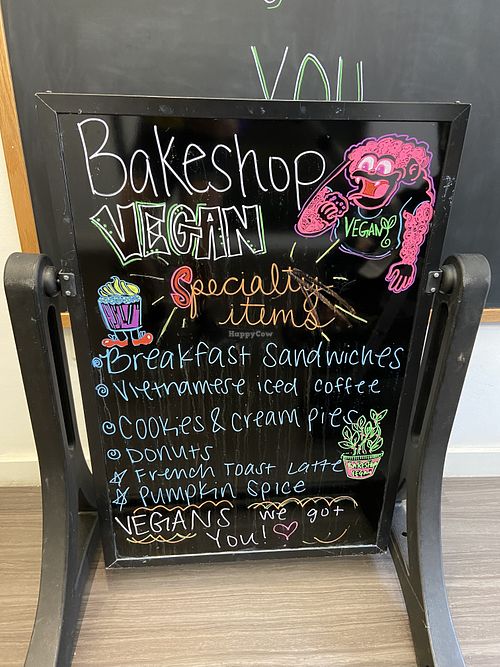 YOU
Bakeshop
VEGAN
VEGAN
Specialty
items
HappyCow
Breakfast Sandwiches
Vietnamese iced coffee
Cookies & cream pies
Donuts
French Toast Latte
Pumpkin Spice
VEGANS we got
You!